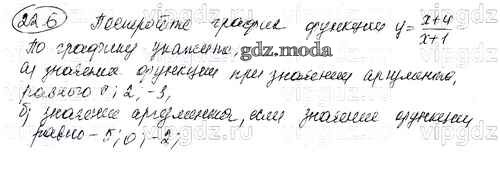 22.6 Постройте график функции y = x+4/x+1
По графику укажите:
gdz.moda
а) значение функции при значении аргумента,
равного 0; 2; -3,
б) значение аргумента, если значение функции
равно -5; 0; -2;